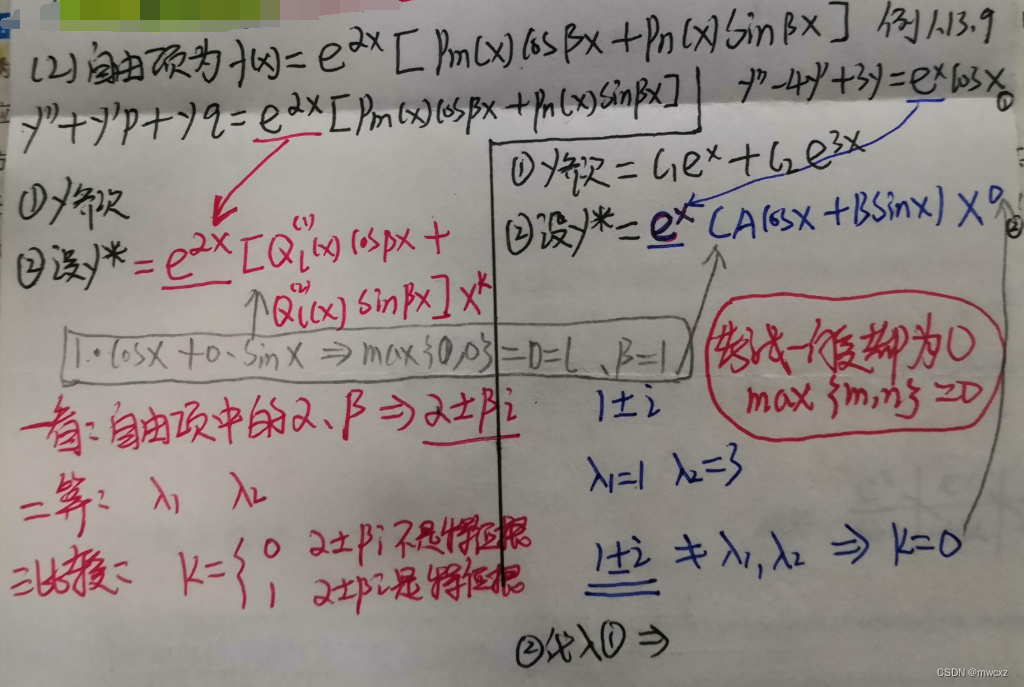 (2) 自由项为 f(x) = e^{2x} [Pm(x) cosβx + Pn(x) sinβx] 例1.13.9
y'' + y'p + yq = e^{2x} [Pm(x) cosβx + Pn(x) sinβx]
y'' - 4y' + 3y = e^x cosx ①
① y齐次
② 设y* = e^{2x} [Q_l^{(1)}(x) cosβx +
Q_l^{(2)}(x) sinβx] x^k
① y齐次 = C₁e^x + C₂e^{3x}
② 设y* = e^x (Acosx + Bsinx) x^0 ②
1·cosx + 0·sinx ⇒ max{0,0} = 0 = l、β=1
一般都为0
max{m,n} = 0
一看: 自由项中的2、β ⇒ 2±βi
二算: λ₁ λ₂
三比较: k = { 0 2±βi不是特征根
1 2±βi是特征根
1±i
λ₁=1 λ₂=3
1±i ≠ λ₁,λ₂ ⇒ k=0
②代入① ⇒
CSDN @mwcxz